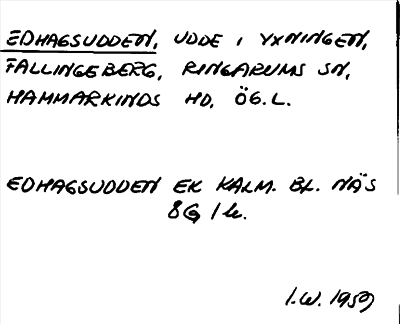 EDHAGSUDDEN, UDDE I YXNINGEN,
FALLINGEBERG, RINGARUMS SN,
HAMMARKINDS HD, ÖG. L.
EDHAGSUDDEN EK KALM. BL. NÄS
8G 1 h.
I.W. 1959